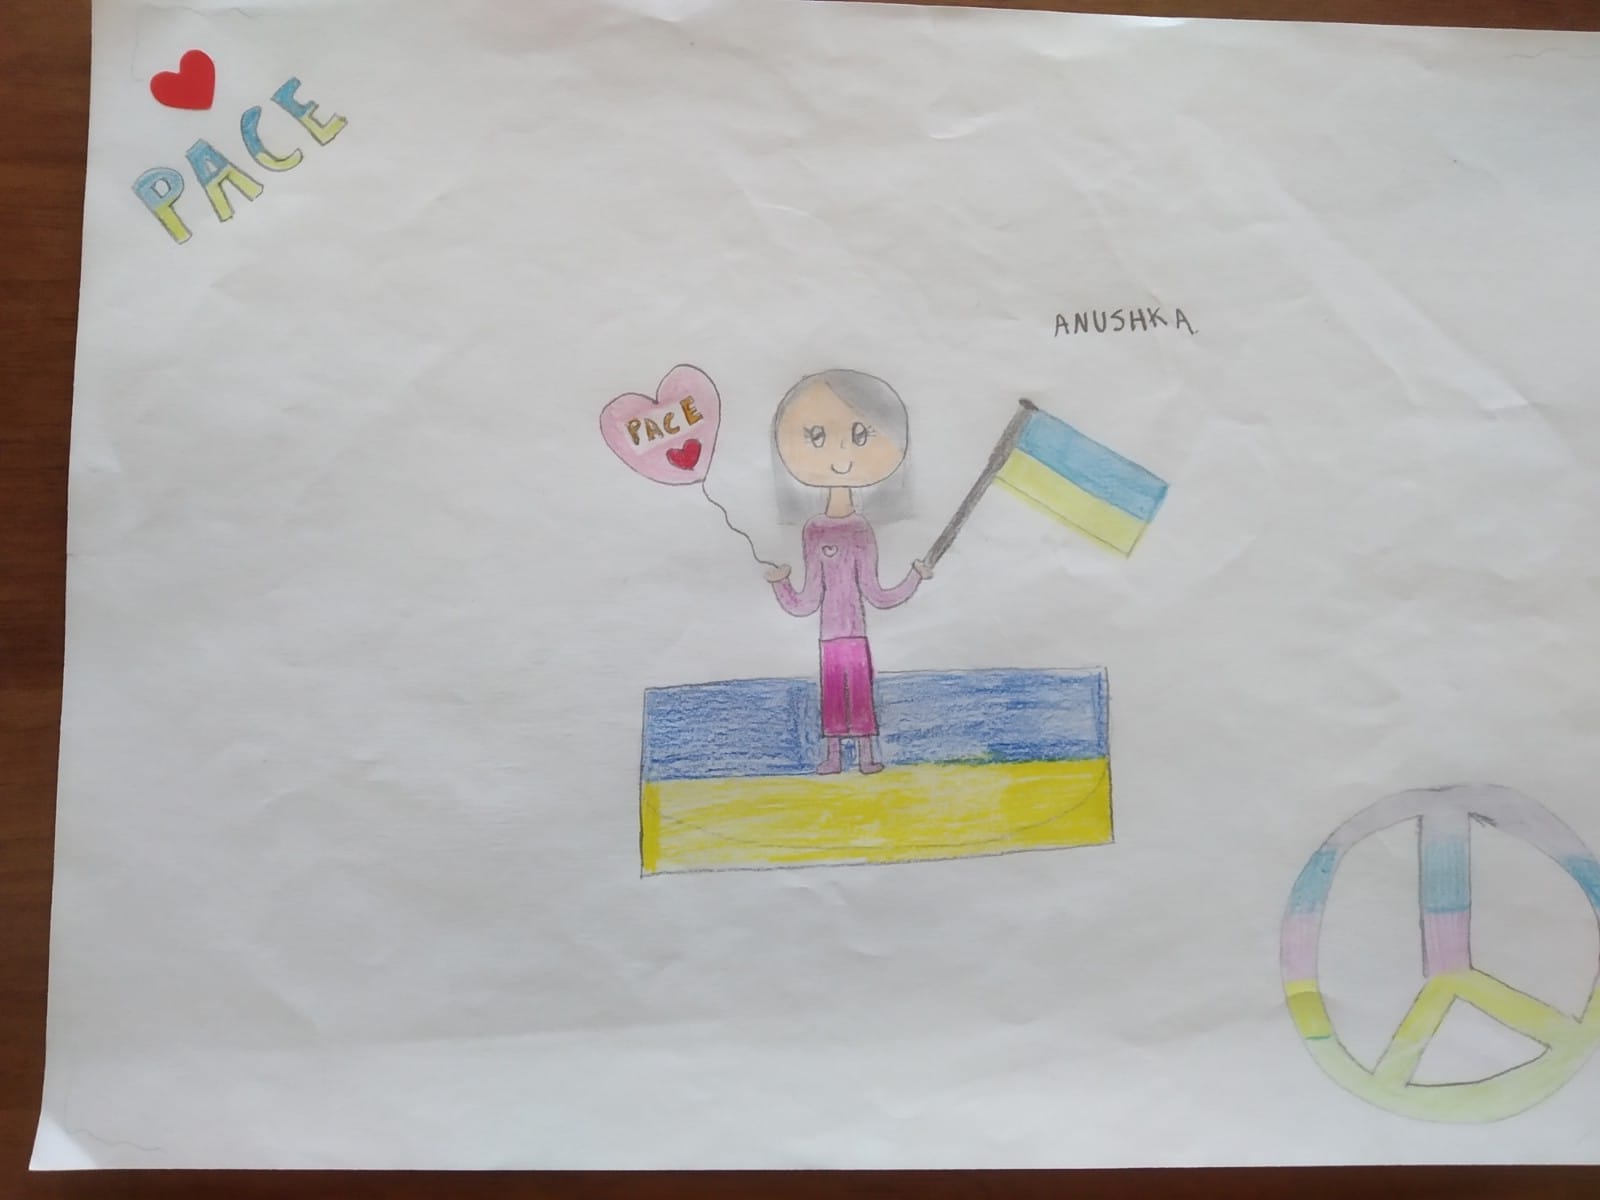 PACE
ANUSHKA.
PACE